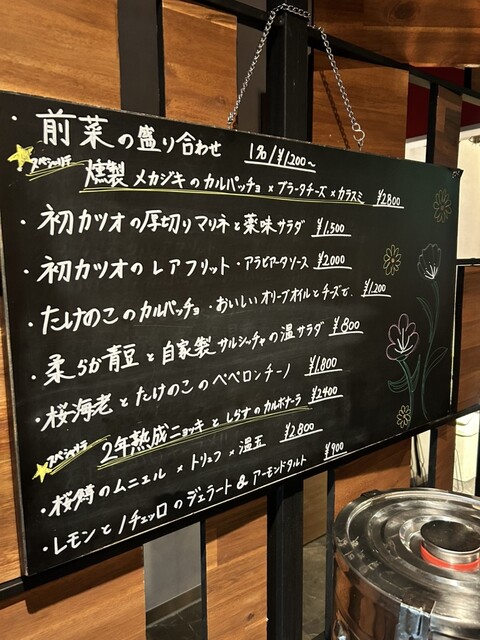 ・前菜の盛り合わせ 1名/¥1,200〜
スペシャリテ 燻製メカジキのカルパッチョ×ブラータチーズ×カラスミ ¥2800
・初カツオの厚切りマリネと薬味サラダ ¥1,500
・初カツオのレアフリット・アラビアータソース ¥2000
・たけのこのカルパッチョ・おいしいオリーブオイルとチーズで. ¥1,200
・柔らか青豆と自家製サルシッチャの温サラダ ¥800
・桜海老とたけのこのペペロンチーノ ¥1.800
スペシャリテ 2年熟成ニョッキとしらすのカルボナーラ ¥2400
・桜鱒のムニエル×トリュフ×温玉 ¥2800
・レモンとノチェッロのジェラート&アーモンドタルト ¥900